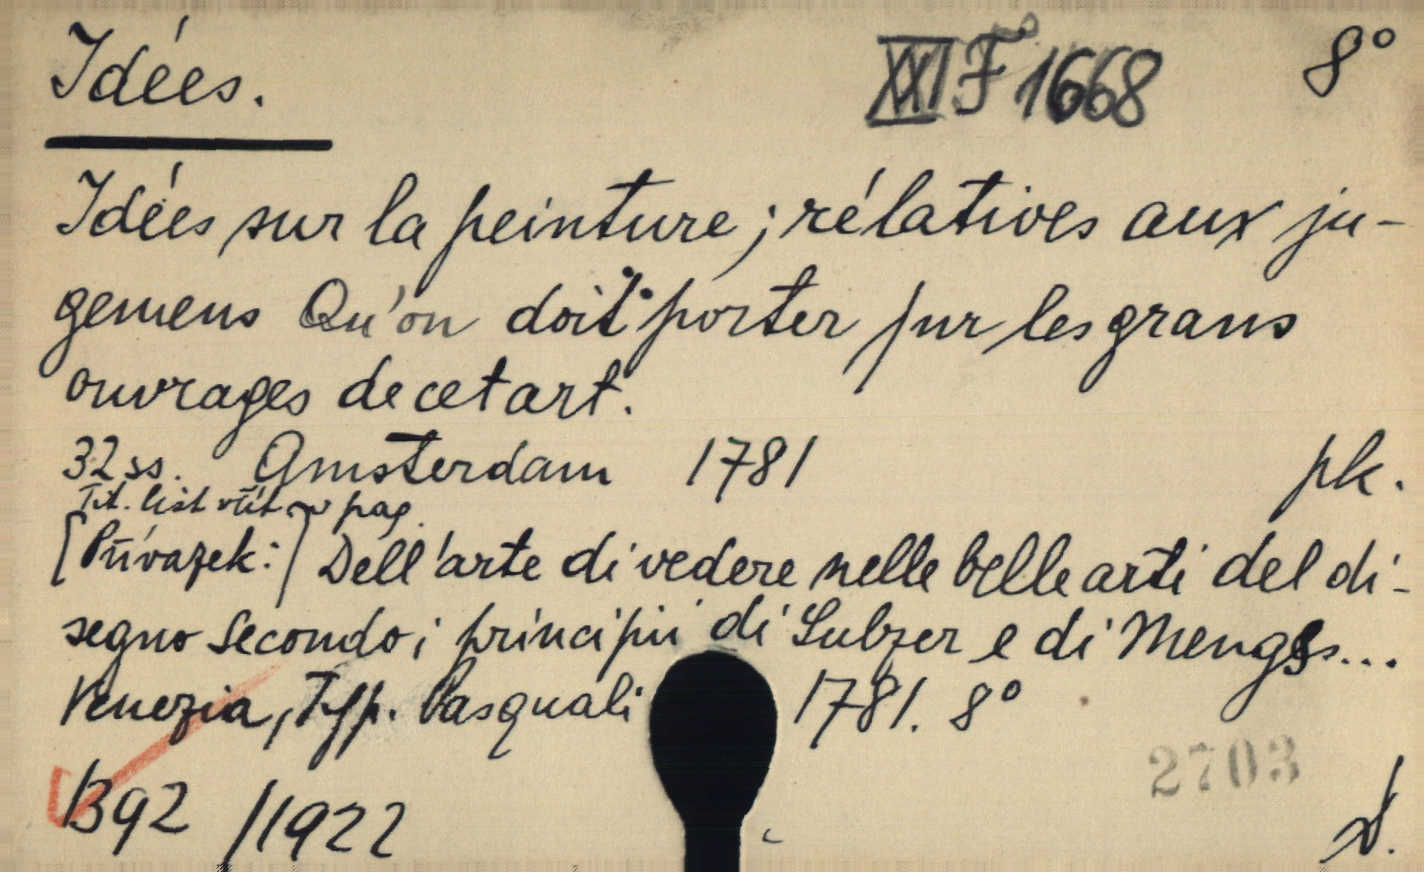 Idées. XXI F 1668 8°
Idées sur la peinture; rélatives aux ju-
gemens Qu'on doit porter sur les grans
ouvrages de cet art.
32 ss. Amsterdam 1781 pk.
Tit. list vtišt. v pag.
[Přívazek:] Dell'arte di vedere nelle belle arti del di-
segno secondo i principii di Sulzer e di Mengs...
Venezia, Typ. Pasquali 1781. 8°
2703
B92/1922